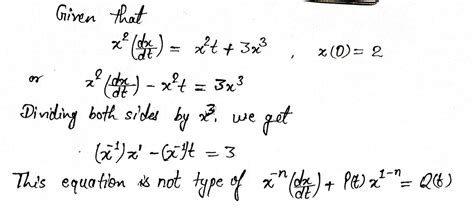 Given that
x²(dx/dt) = x²t + 3x³ , x(0) = 2
or x²(dx/dt) - x²t = 3x³
Dividing both sides by x³, we get
(x⁻¹)x' - (x⁻¹)t = 3
This equation is not type of x⁻ⁿ(dx/dt) + P(t) x¹⁻ⁿ = Q(t)